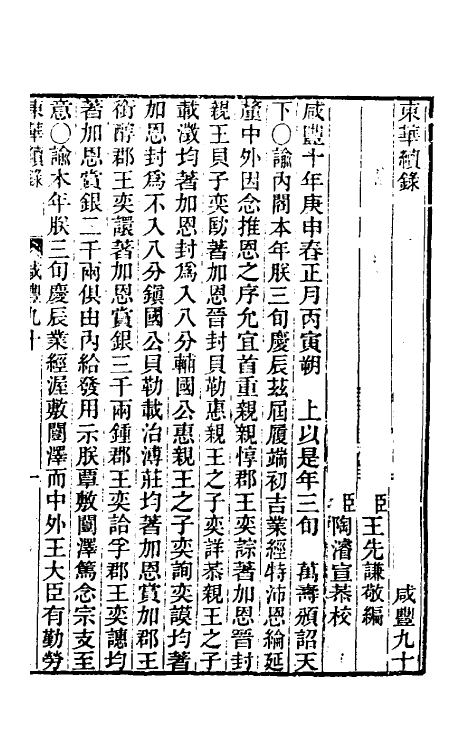 東華續錄　咸豐九十
臣王先謙敬編
臣陶濬宣恭校
咸豐十年庚申春正月丙寅朔　上以是年三旬　萬壽頒詔天
下〇諭內閣本年朕三旬慶辰茲屆履端初吉業經特沛恩綸延
釐中外因念推恩之序允宜首重親親惇郡王奕誴著加恩晉封
親王貝子奕劻著加恩晉封貝勒惠親王之子奕詳恭親王之子
載澂均著加恩封爲入八分輔國公惠親王之子奕詢奕謨均著
加恩封爲不入八分鎮國公貝勒載治溥莊均著加恩賞加郡王
銜醇郡王奕譞著加恩賞銀三千兩鍾郡王奕詥孚郡王奕譓均
著加恩賞銀二千兩俱由內給發用示朕覃敷闓澤篤念宗支至
意〇諭本年朕三旬慶辰業經渥敷闓澤而中外王大臣有勤勞
東華續錄　咸豐九十　一